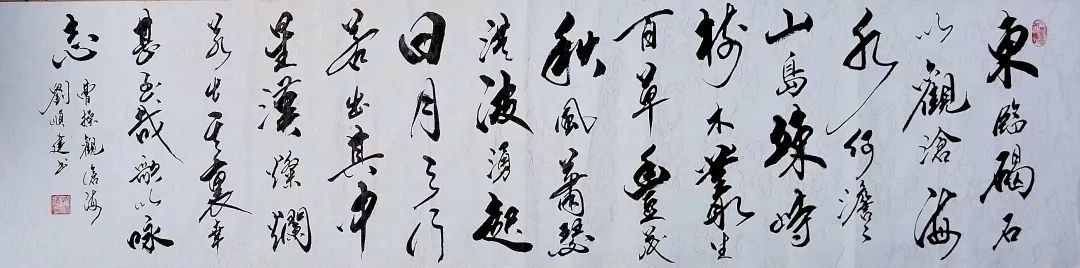 東臨碣石
以觀滄海
水何澹々
山島竦峙
樹木叢生
百草豐茂
秋風蕭瑟
洪波湧起
日月之行
若出其中
星漢燦爛
若出其裏幸
甚至哉歌以咏
志
曹操觀滄海
劉順建书